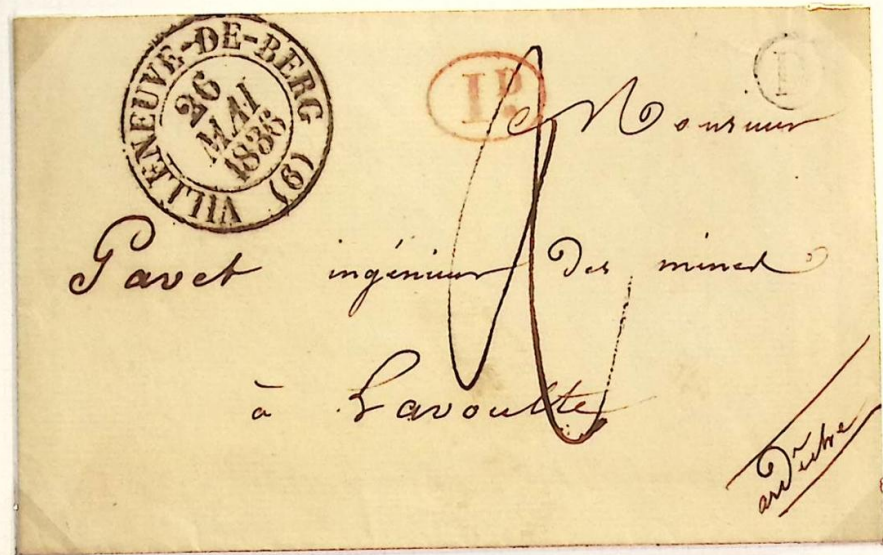 VILLENEUVE-DE-BERG (6)
26
MAI
1836
1D.
Monsieur
Pavet ingénieur des mines
à Lavoulte
ardèche